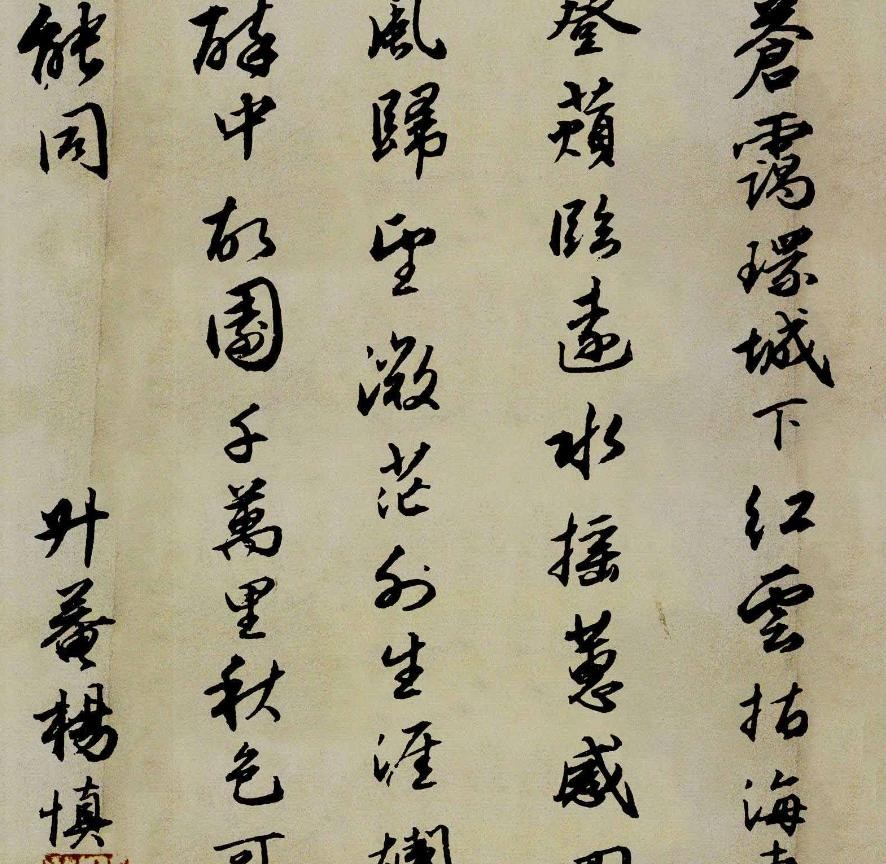 蒼靄環城下紅雲拈海
登蘋臨遠水搖蕙感
風歸望微茫外生涯爛
醉中故園千萬里秋色可
能同
升菴楊慎